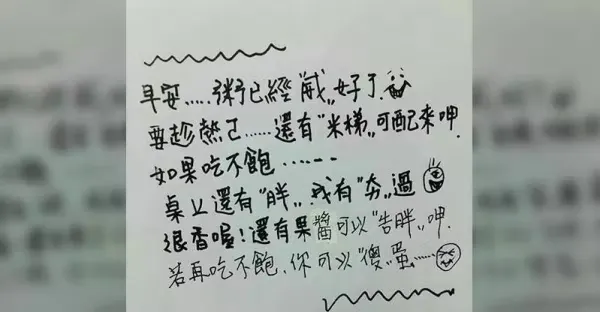 早安.....粥已經"咸"好了.
要趁熱吃......還有"米梯"可配來呷.
如果吃不飽......
桌上還有"胖".我有"夯"過
很香喔!還有果醬可以"告胖"呷.
若再吃不飽.你可以"傻"蛋......